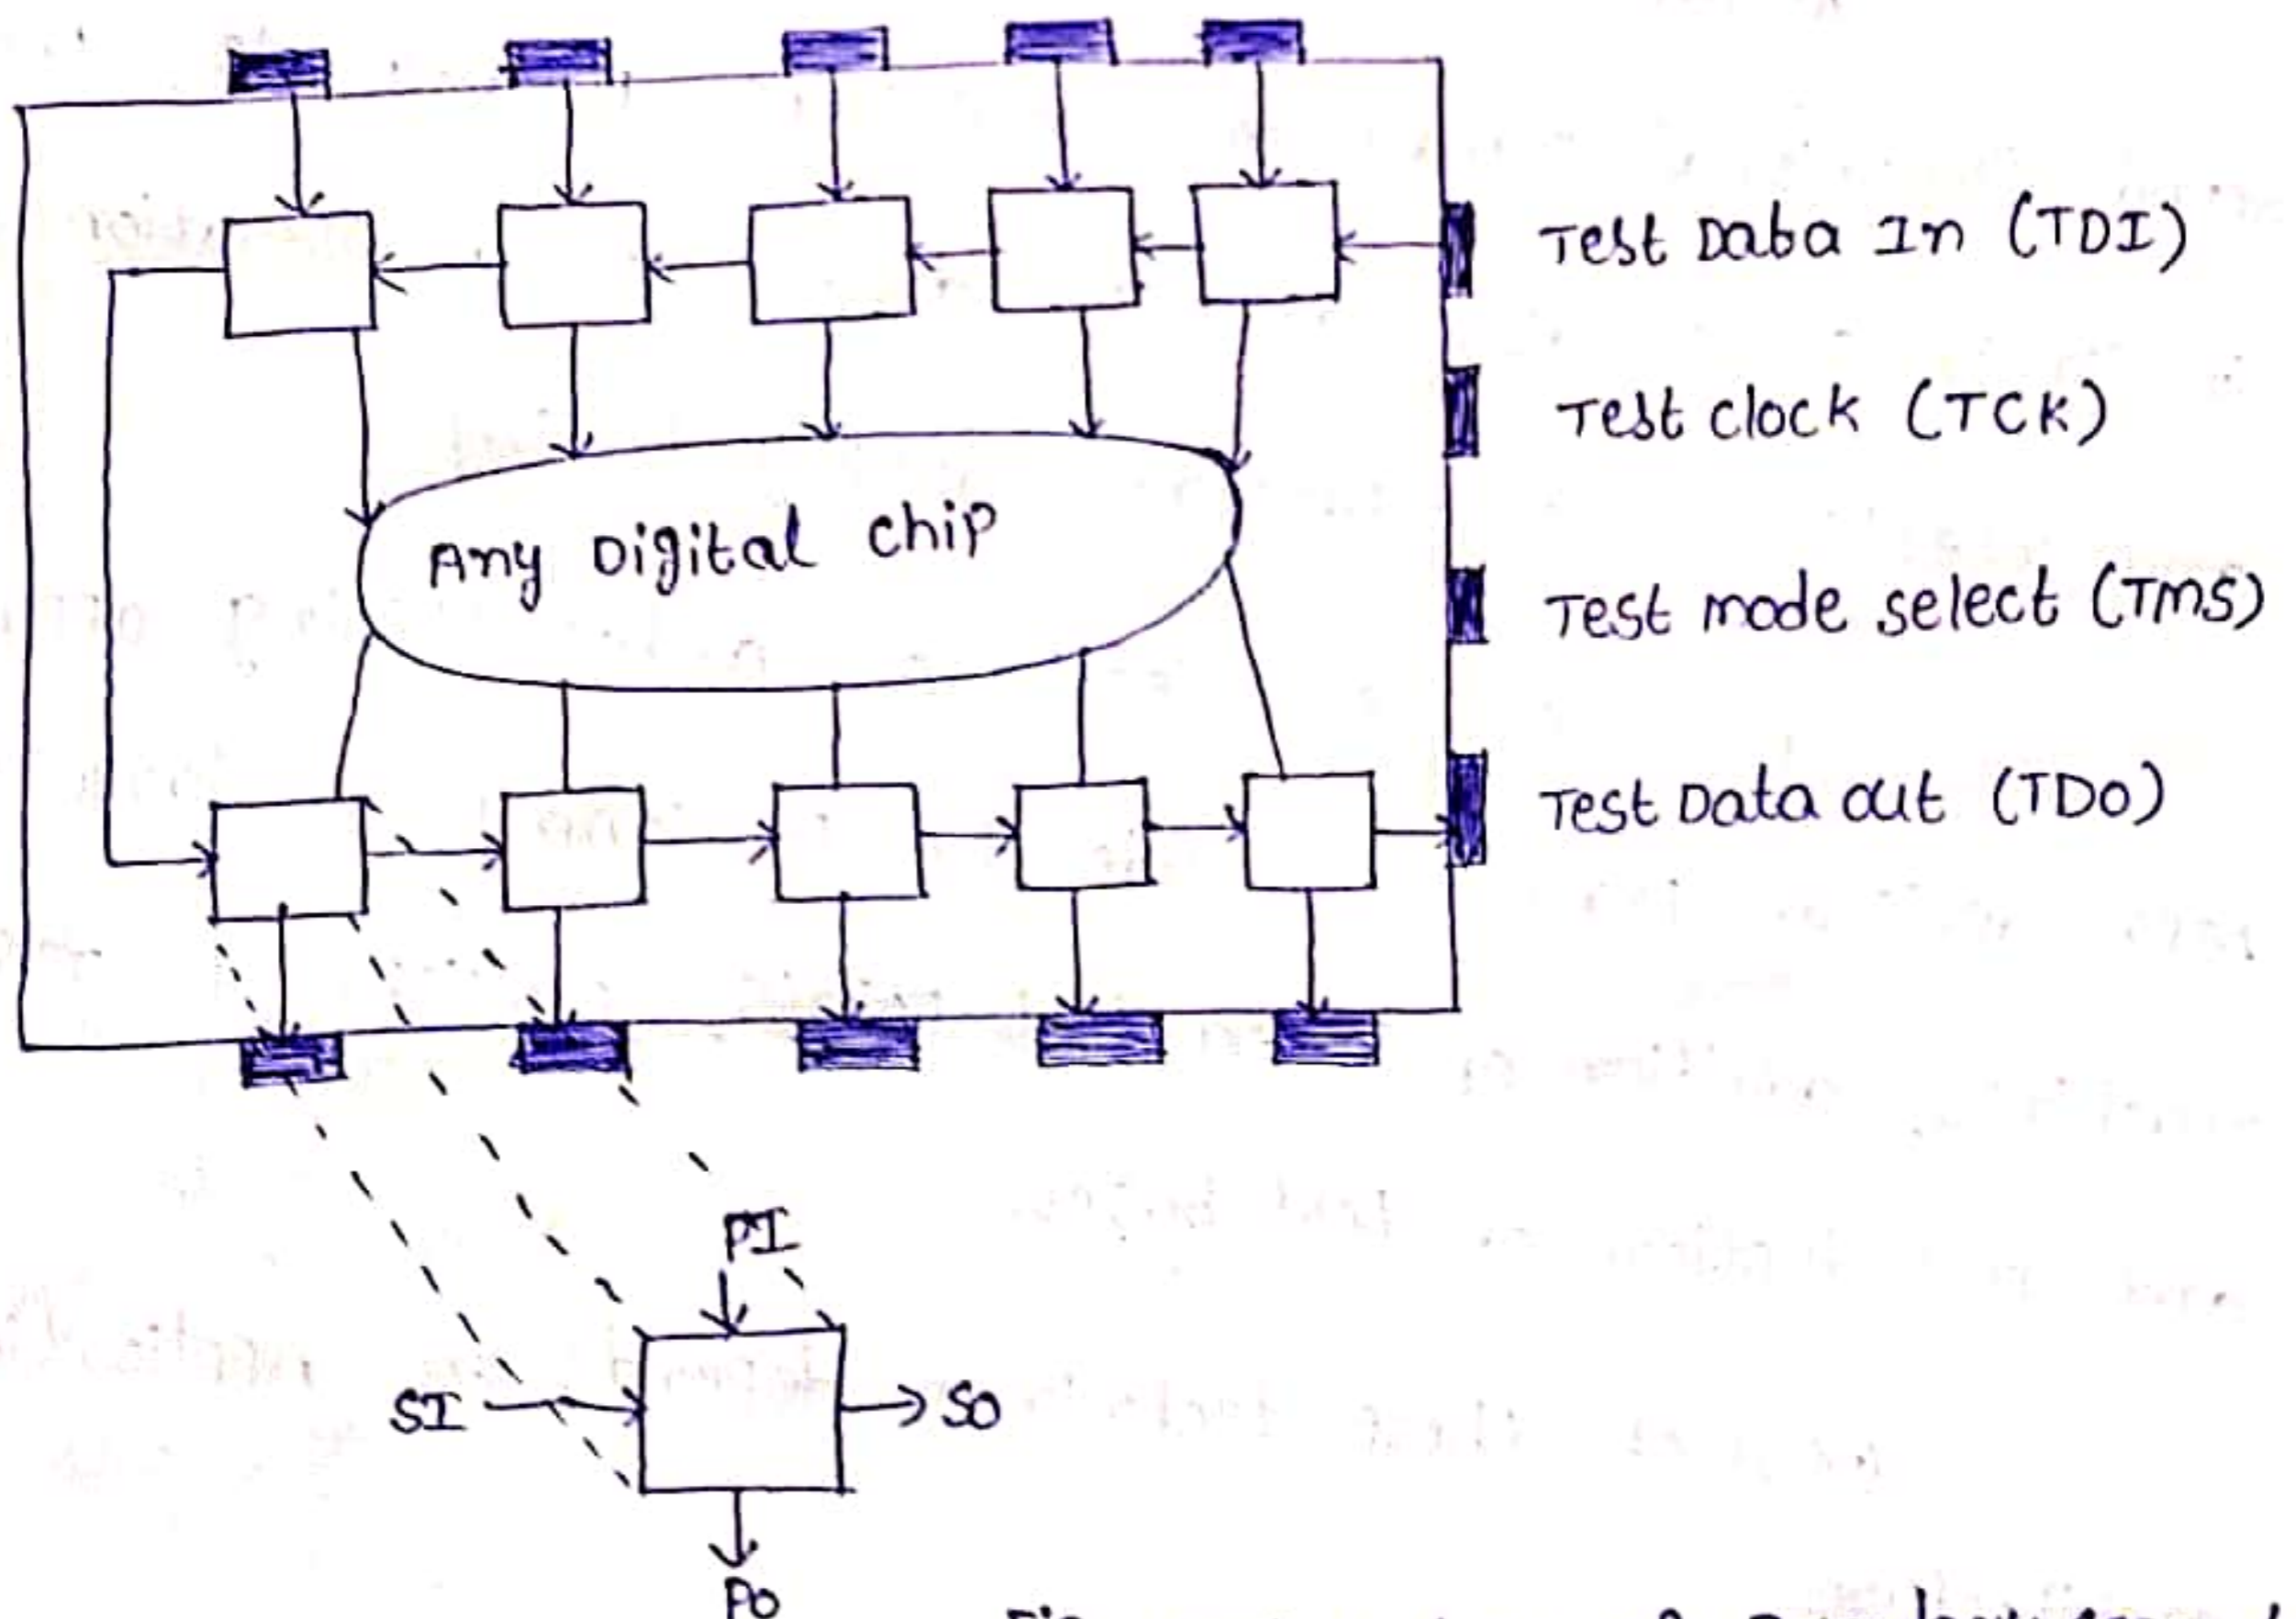 Test Data In (TDI)
Test clock (TCK)
Any Digital chip
Test mode select (TMS)
Test Data out (TDO)
PI
SI
SO
PO